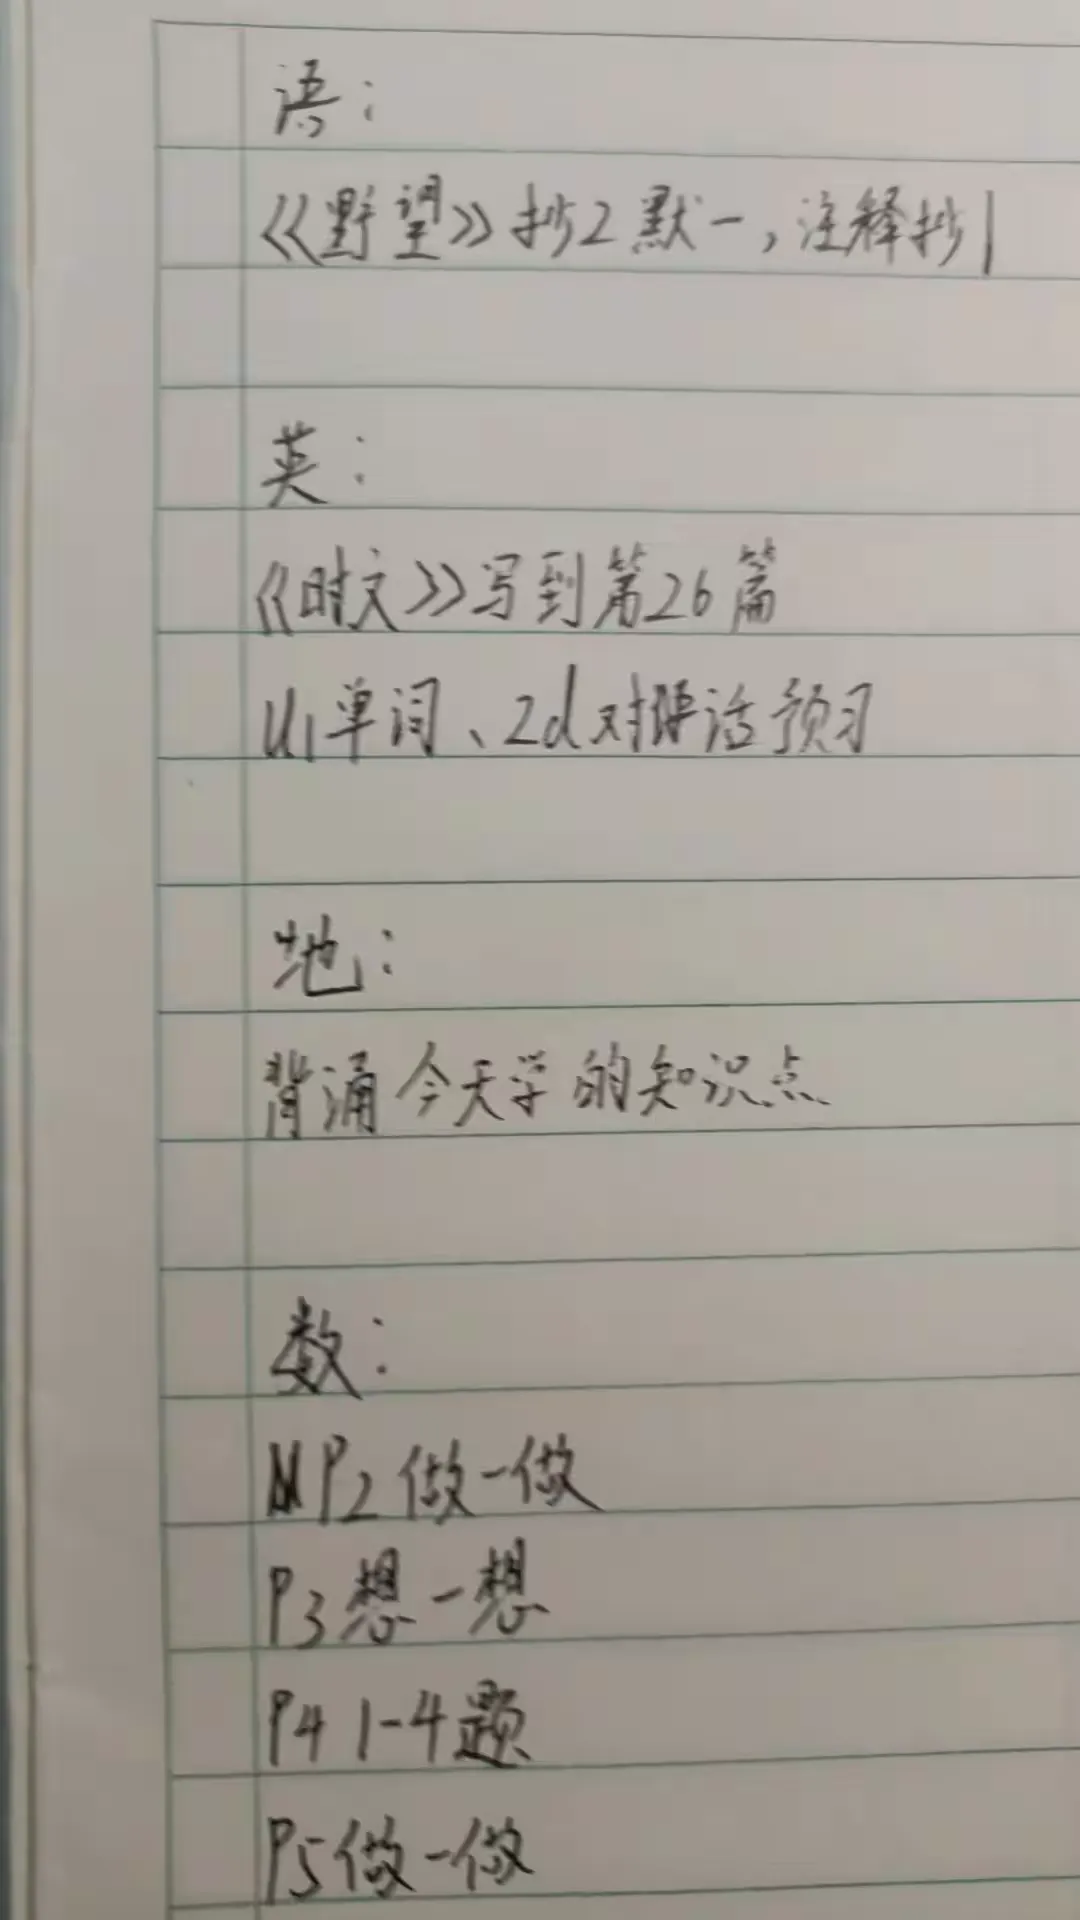 语：
《野望》抄2默一，注释抄1
英：
《时文》写到第26篇
U1单词、2d对话预习
地：
背诵今天学的知识点
数：
P2做一做
P3想一想
P4 1-4题
P5做一做